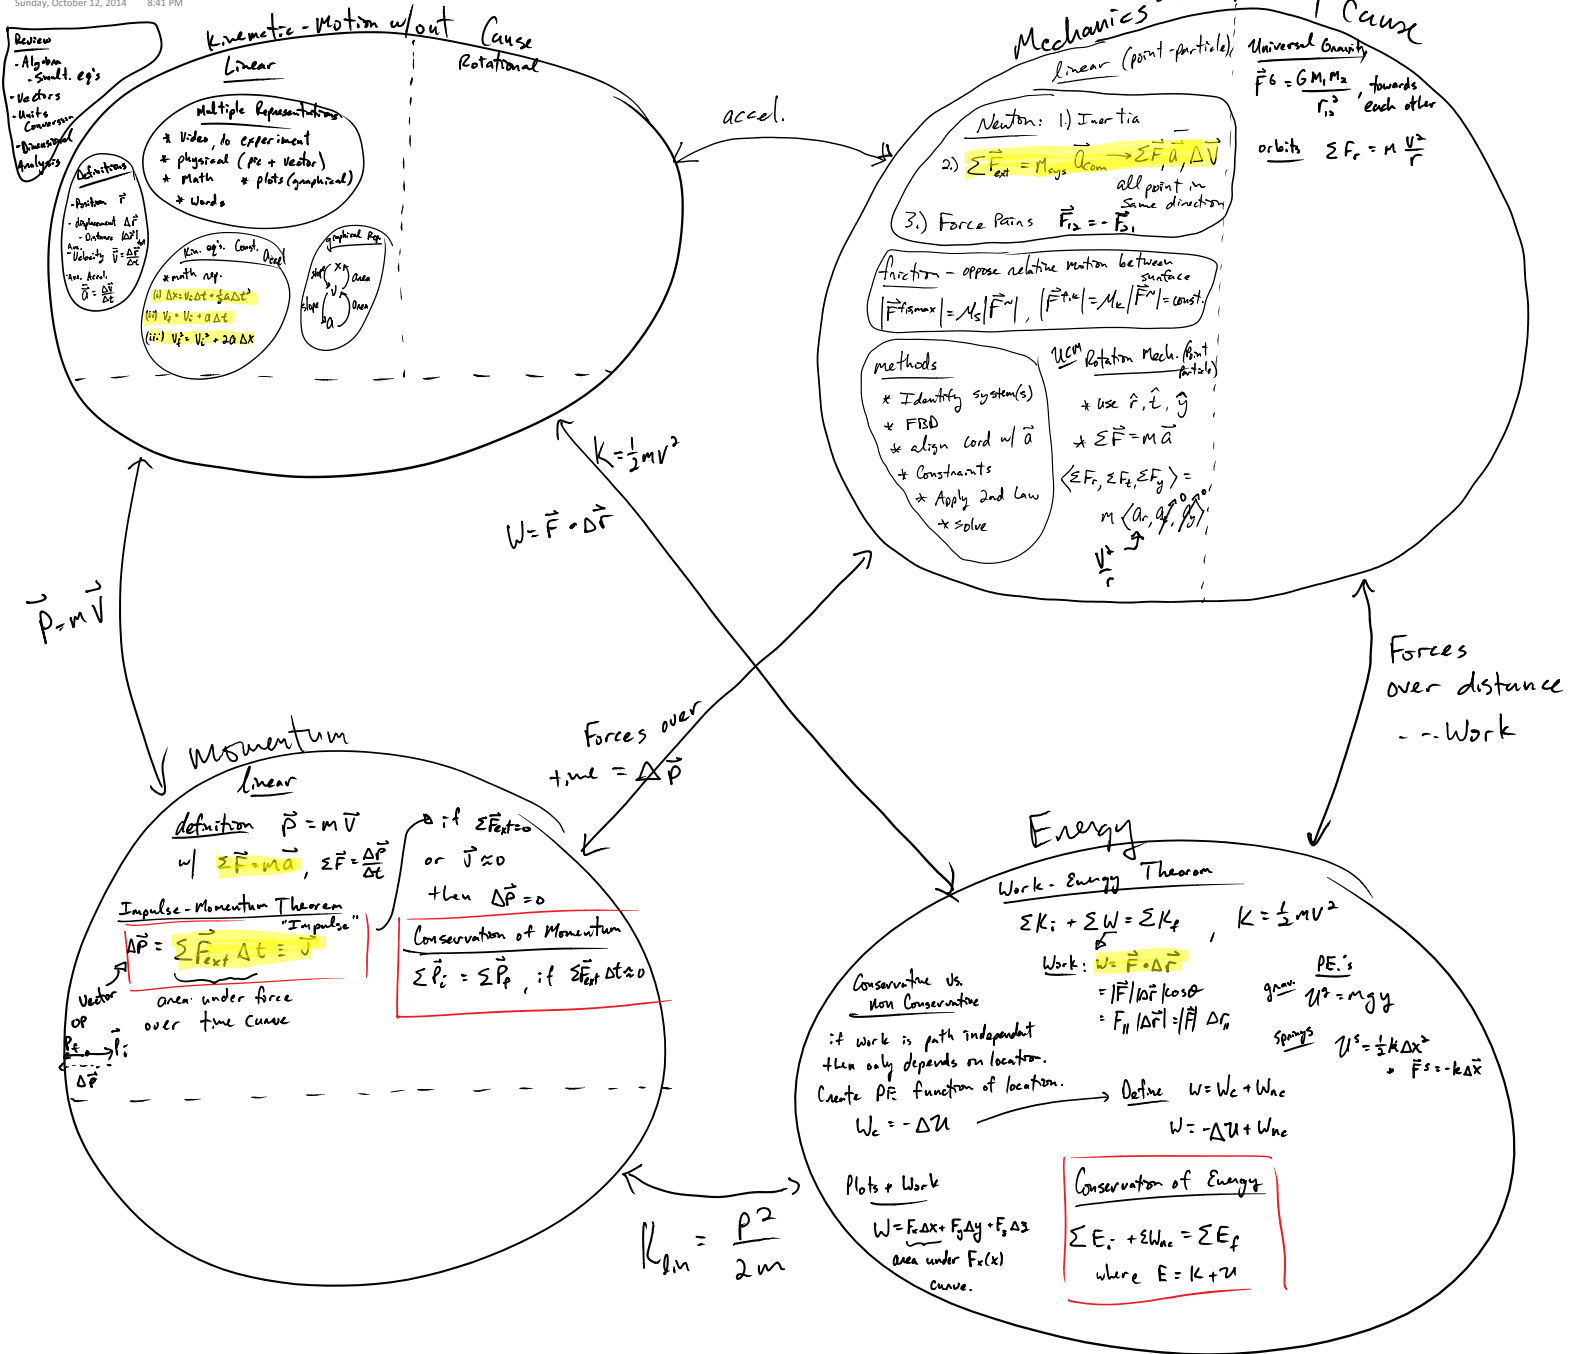 Sunday, October 12, 2014 8:41 PM
Review
- Algebra
- Simult. eq's
- Vectors
- Units
Conversion
- Dimensional
Analysis
Kinematic - Motion w/out Cause
Linear
Rotational
Multiple Representations
* Video, do experiment
* physical (pic + vector)
* Math * plots (graphical)
* Words
Definitions
- Position r⃗
- displacement Δr⃗
- Distance |Δr⃗|
Ave.
- Velocity v⃗ = Δr⃗/Δt
- Ave. Accel.
a⃗ = Δv⃗/Δt
Kin. eq's. Const. accel
* math rep.
(i) Δx = v_i Δt + ½ a Δt²
(ii) V_f = V_i + a Δt
(iii) V_f² = V_i² + 2a Δx
graphical Rep.
slope x area
v
slope area
a
accel.
Mechanics - Cause
linear (point-particle)
Newton: 1.) Inertia
2.) ΣF⃗_ext = M_sys a⃗_com → ΣF⃗, a⃗, ΔV⃗
all point in
same direction
3.) Force Pairs F⃗₁₂ = -F⃗₂₁
friction - oppose relative motion between
surface
|F⃗^fs,max| = μ_s |F⃗^N| , |F⃗^f,k| = μ_k |F⃗^N| = const.
methods
* Identify system(s)
* FBD
* align cord w/ a⃗
* Constraints
* Apply 2nd Law
* solve
UCM Rotation Mech. (Point
particle)
* use r̂, t̂, ŷ
* ΣF⃗ = m a⃗
⟨ΣF_r, ΣF_t, ΣF_y⟩ =
m ⟨a_r, a_t, a_y⟩
0 0
V²/r
Universal Gravity
F⃗^G = G M₁ M₂ / r₁₂² , towards
each other
orbits ΣF_r = m V²/r
K = ½ mv²
W = F⃗ • Δr⃗
P⃗ = m V⃗
Forces over
time = ΔP⃗
Forces
over distance
- - - Work
Momentum
linear
definition P⃗ = m V⃗
w/ ΣF⃗ = m a⃗ , ΣF⃗ = ΔP⃗/Δt
Impulse - Momentum Theorem
"Impulse"
ΔP⃗ = ΣF⃗_ext Δt ≡ J⃗
area under force
over time curve
Vector
OP
P_f P⃗_i
ΔP⃗
if ΣF⃗_ext = 0
or J⃗ ≈ 0
then ΔP⃗ = 0
Conservation of Momentum
ΣP⃗_i = ΣP⃗_f , if ΣF⃗_ext Δt ≈ 0
K_lin = P²/2m
Energy
Work - Energy Theorem
ΣK_i + ΣW = ΣK_f , K = ½ mv²
Work: W = F⃗ • Δr⃗
= |F⃗| |Δr⃗| cosθ
= F_∥ |Δr⃗| = |F⃗| Δr_∥
P.E.'s
grav. U^g = mgy
springs U^s = ½ k Δx²
F⃗^s = -kΔx⃗
Conservative vs.
non Conservative
if work is path independent
then only depends on location.
Create PE function of location.
W_c = -ΔU
Define W = W_c + W_nc
W = -ΔU + W_nc
Plots + Work
W = F_x Δx + F_y Δy + F_z Δz
area under F_x(x)
curve.
Conservation of Energy
ΣE_i + ΣW_nc = ΣE_f
where E = K + U